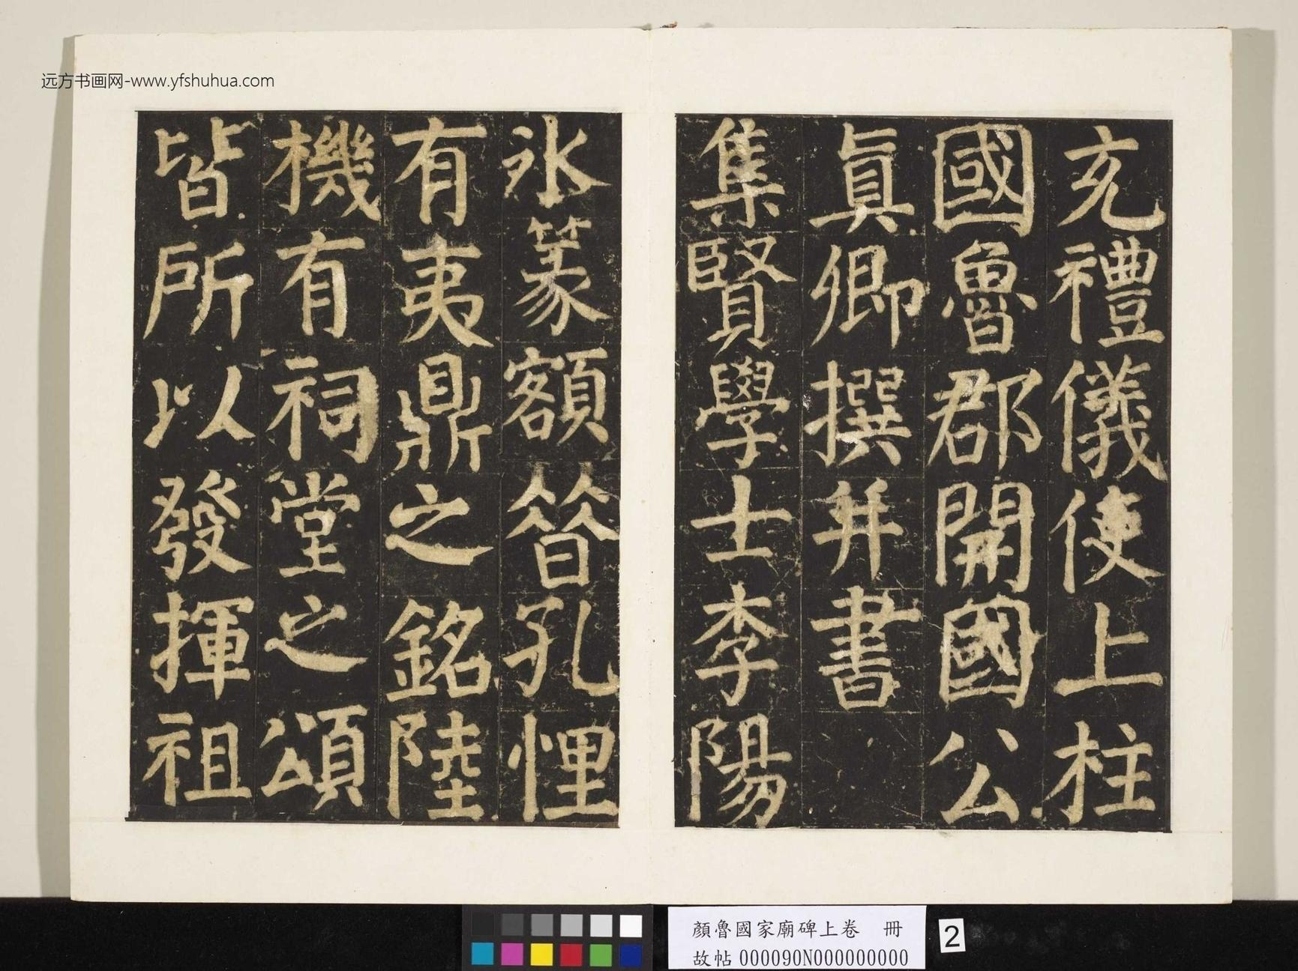 远方书画网-www.yfshuhua.com
充禮儀使上柱
國魯郡開國公
真卿撰并書
集賢學士李陽
氷篆額晉孔悝
有夷鼎之銘陸
機有祠堂之頌
皆所以發揮祖
顏魯國家廟碑上卷 冊
故帖000090N000000000
2